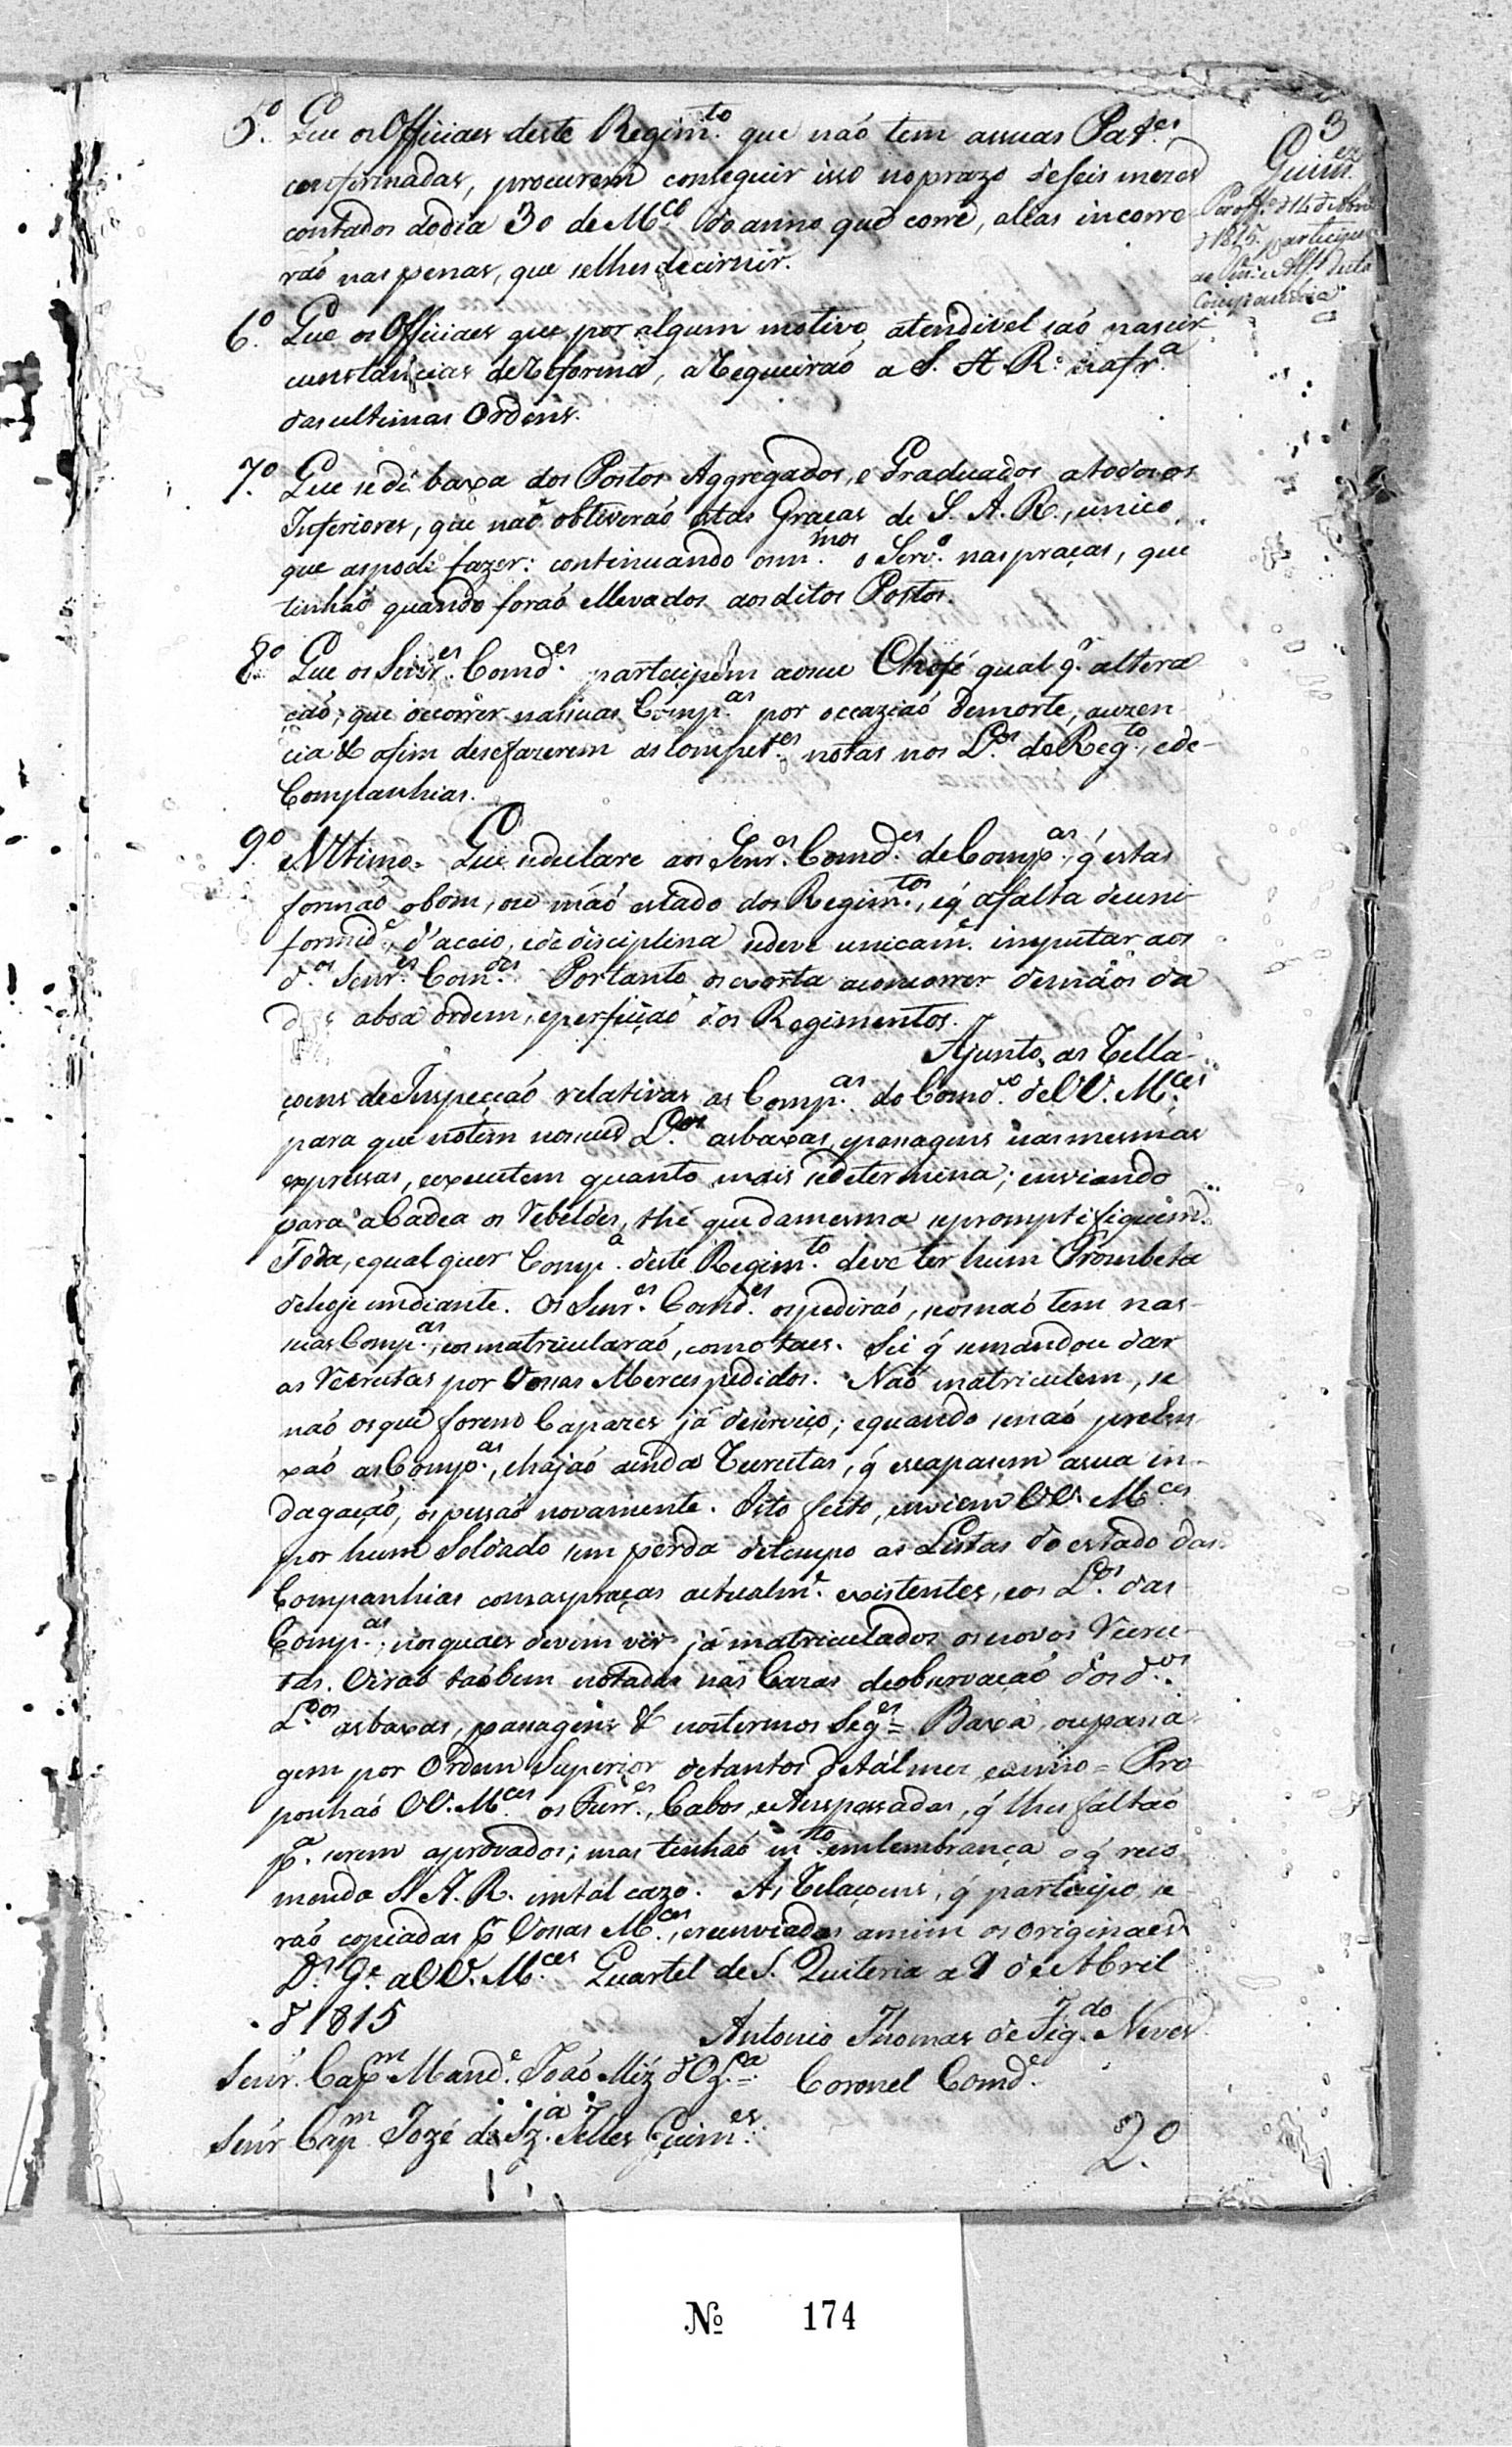 3
Guim.es
Por off.º d 14 d 8br.º
d 1815 participei
Companhia
5.º Que os Officiaes deste Regim.to que naõ tem assuas Pat.es
confirmadas, procurem conseguir isso no prazo deseis mezes
contados dodia 30 de M.ço do anno que corre, aleas incorre-
raõ nas penas, que selhes decirnir.
6.º Que os Officiaes que por algum motivo atendivel saõ nascir-
cunstancias de Reforma, a Requeiraõ a S. A. R. na fr.a
das ultimas Ordens.
7.º Que sedê baxa dos Postos Aggregados, e Graduados atodos os
Inferiores, que naõ obtiveraõ estas Graças de S. A. R., unico,
que aspode fazer: continuando osm.mos o Serv.º nas praças, que
tinhaõ quando foraõ ellevados aos ditos Postos.
8.º Que os Senr.es Comd.es participem aoseu Chefe qual q.r altera
çaõ, que occorrer nassuas Comp.as por occaziaõ demorte, auzen-
cia & afim desefazerem as compet.es notas nos L.os do Reg.to, ede-
Companhias.
9.º e Ultimo. Que sedeclare aos Senr.es Comd.es de Comp.as, q̃ estas
formaõ obom, ou máo estado dos Regim.tos, eq̃ afalta deuni-
formid.e, d'aceio, ede disciplina sedeve unicam.e imputar aos
d.os Senr.es Com.des Portanto os exorta aconcorrer demãos da
das aboa ordem, eperfeiçaõ dos Regimentos.
Ajunto as Rella-
çoens de Inspecçaõ relativas as Comp.as do Comd.o de V.V. M.ces
para que notem nosseus L.os asbaxas, epassagens nas mesmas
expressas, eexecutem quanto mais sedetermina; enviando
para a Cadea os Rebeldes, thé que damesma seprompt ifiquem.
Toda, equalquer Comp.a deste Regim.to deve ter hum Trombeta
dehoje emdiante. Os Senr.es Comd.es ospediraõ, seosnaõ tem nas-
suas Comp.as, eos matricularaõ, como taes. Sei q̃ semandou dar
as Recrutas por Vossas Merces pedidos. Naõ matriculem, se
naõ osque forem Capazes já deserviço; equando senaõ preèn
xaõ asComp.as, ehajaõ ainda Recrutas, q̃ escapasem asua in-
dagaçaõ, ospessaõ novamente. Isto feito, enviem VV. M.ces
por hum Soldado sem perda detempo as Listas do estado das
Companhias comaspraças actualm.e existentes, eos L.os das
Comp.as; nosquaes devem vir já matriculados os novos Recru-
tas. Viraõ taõbem notadas nas Cazas deobservaçaõ dos d.os
L.os asbaxas, passagens & nostermos Seg.es = Baxa, oupassa-
gem por Ordem Superior detantos detál mez, eanno = Pro
ponhaõ VV. M.ces os Furr.es, Cabos, eAnspessadas, q̃ lhes faltaõ
p.a serem aprovados; mas tenhaõ m.to emlembrança oq̃ reco
menda S. A. R. emtal cazo. As Relaçoens, q̃ participo, se
raõ copiadas p.r Vossas M.ces, ereenviadas amim os originaes
D.s G.e aVV. M.ces Quartel de S. Quiteria a 9 de Abril
d 1815
Antonio Thomas de Fig.do Neves
Coronel Comd.e
Senr. Cap.m Mand.e Joaõ Miz d'Olz.a =
Senr. Cap.m Jozé de Sz.a Telles Guim.es
2.º
Nº 174